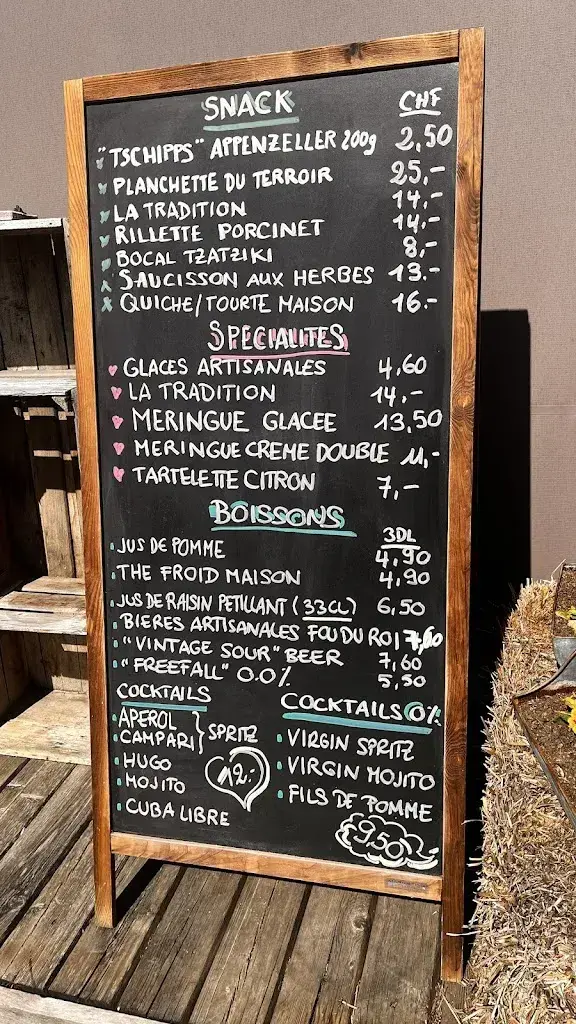 SNACK CHF
"TSCHIPPS" APPENZELLER 200g 2,50
PLANCHETTE DU TERROIR 25,-
LA TRADITION 14,-
RILLETTE PORCINET 14,-
BOCAL TZATZIKI 8,-
SAUCISSON AUX HERBES 13.-
QUICHE/TOURTE MAISON 16.-
SPECIALITES
GLACES ARTISANALES 4,60
LA TRADITION 14,-
MERINGUE GLACEE 13,50
MERINGUE CREME DOUBLE 11,-
TARTELETTE CITRON 7,-
BOISSONS
3DL
JUS DE POMME 4,90
THE FROID MAISON 4,90
JUS DE RAISIN PETILLANT (33CL) 6,50
BIERES ARTISANALES FOU DU ROI 7,60
"VINTAGE SOUR" BEER 7,60
"FREEFALL" 0.0% 5,50
COCKTAILS
APEROL
CAMPARI } SPRITZ
HUGO
MOJITO
CUBA LIBRE
12.-
COCKTAILS 0%
VIRGIN SPRITZ
VIRGIN MOJITO
FILS DE POMME
9,50